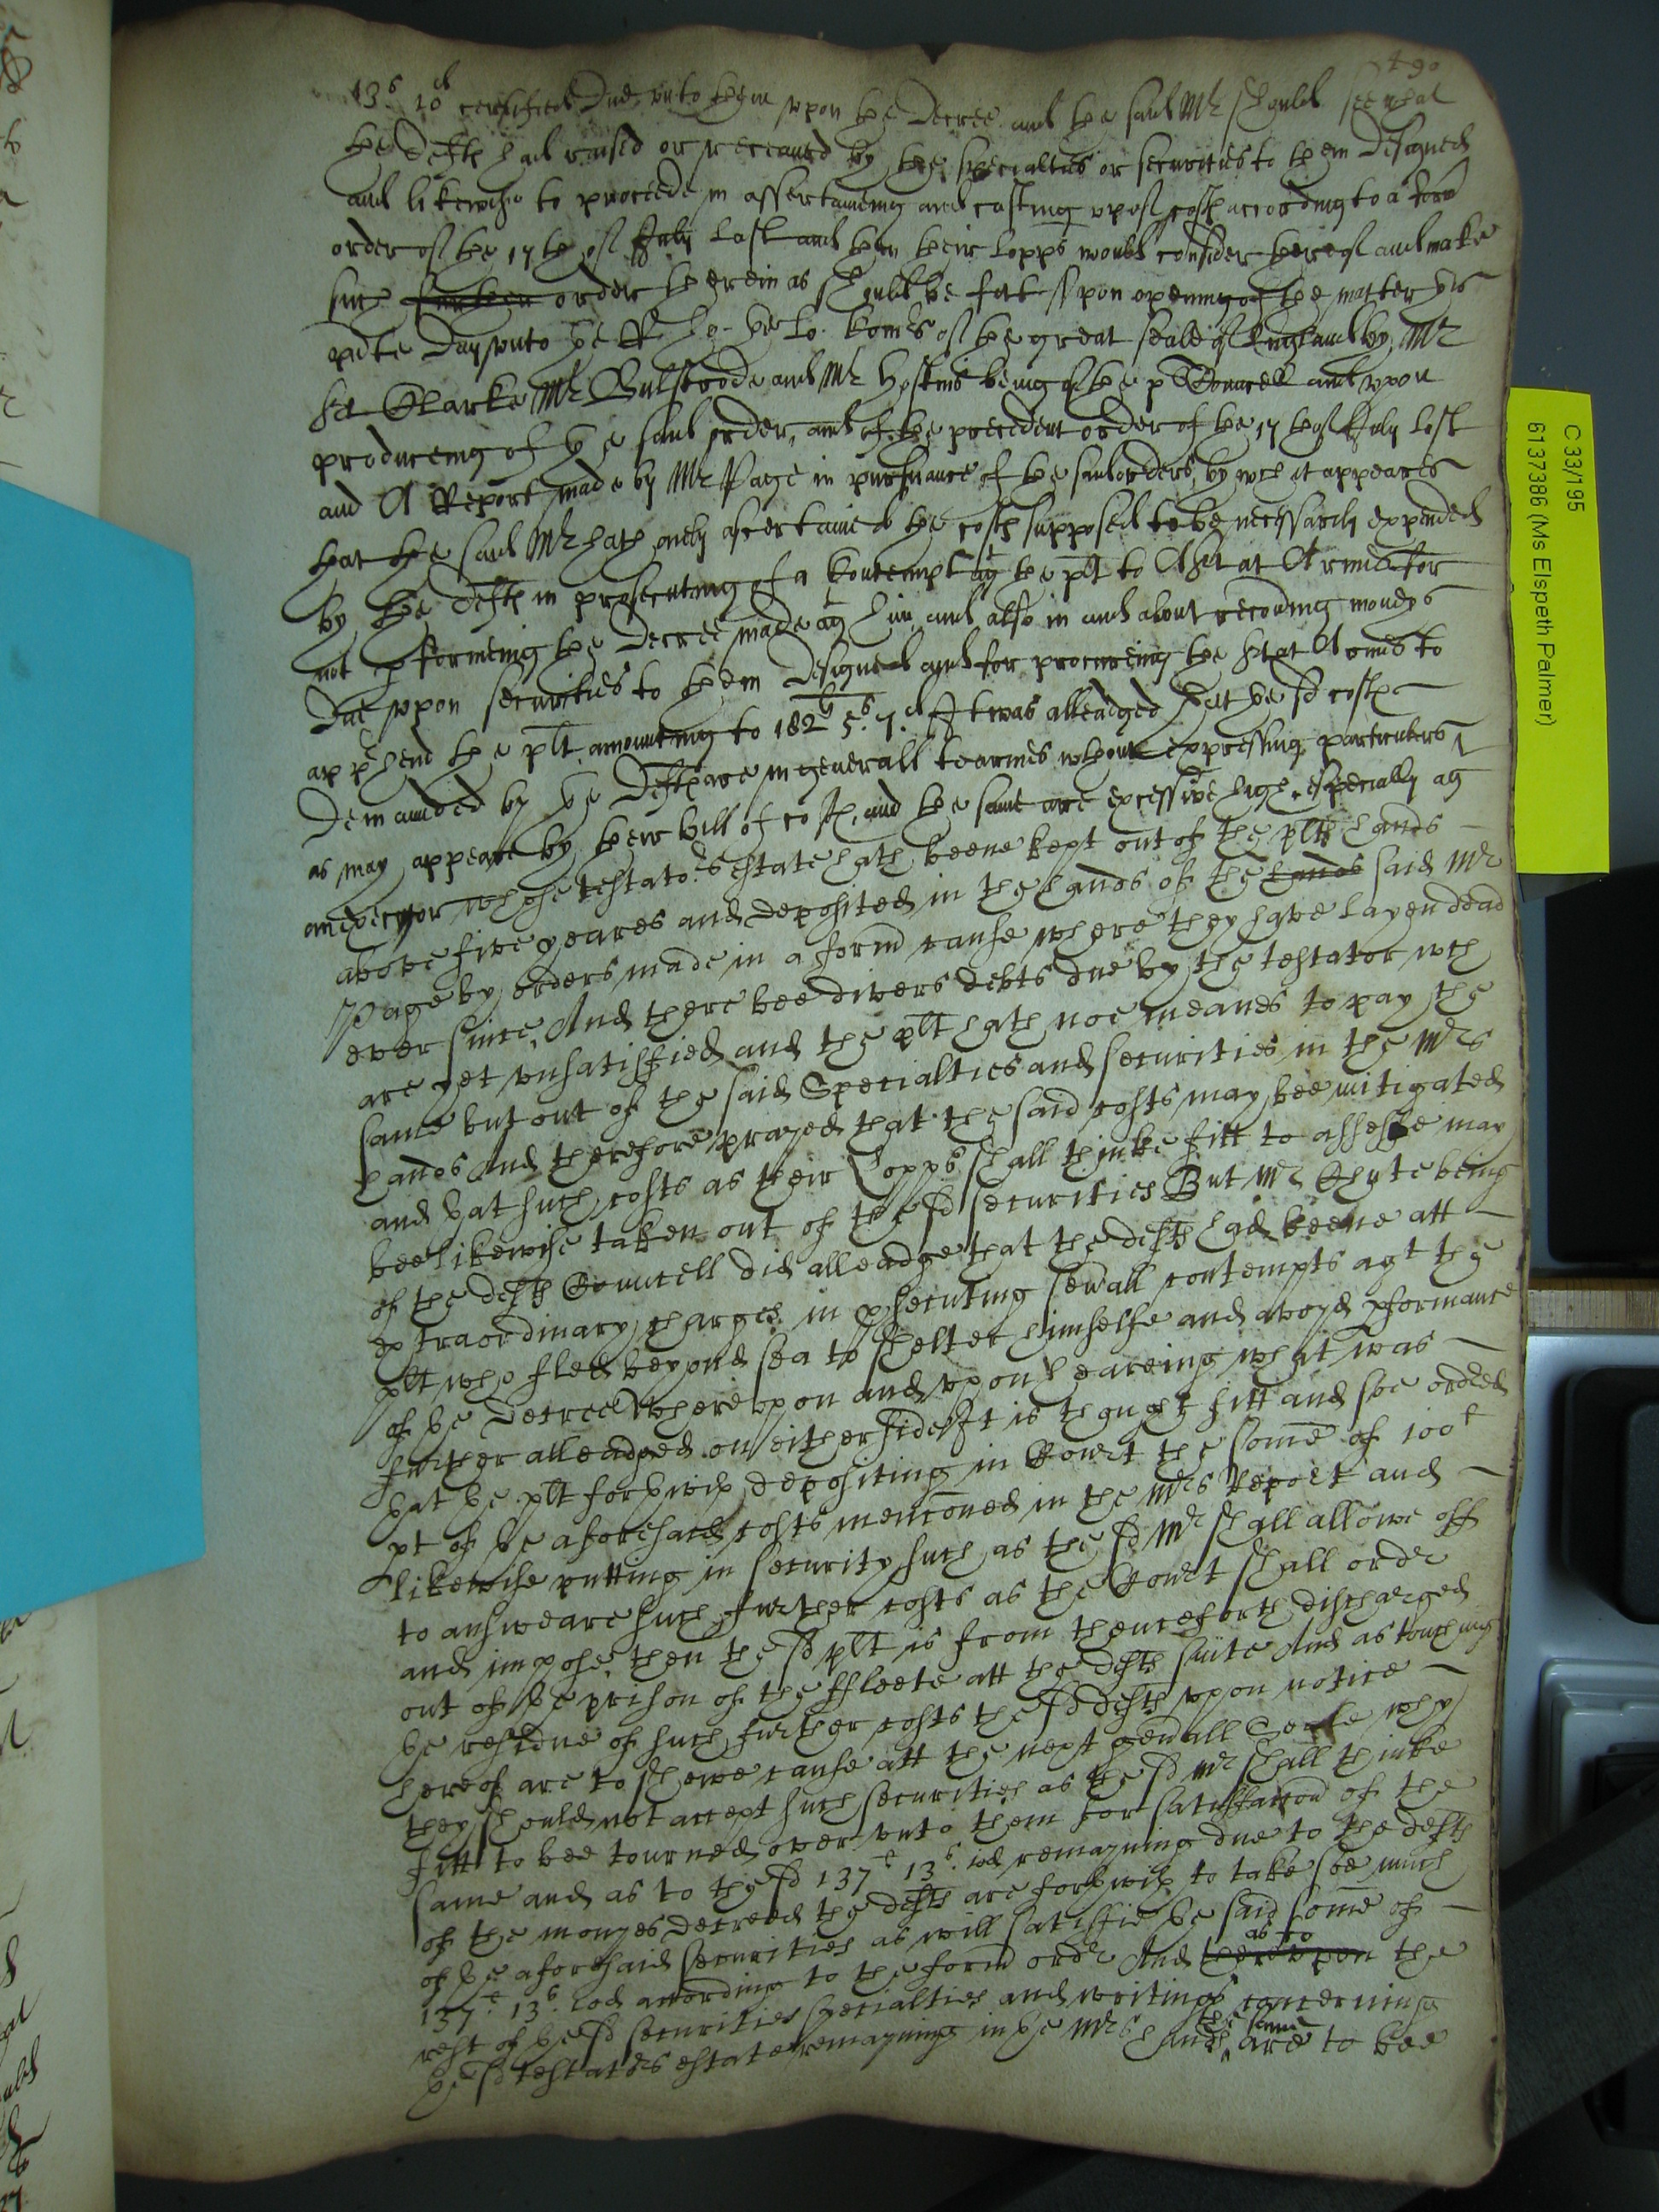 490
13s 10d certified due unto them upon the decree and the said Mr should see what
the defts had raised or received by the specialties or securities to them assigned
and likewise to proceede in assertaineing and casting upp of costs according to a form
order of the 17th of July last and then their Lopps would consider thereof and make
such further order therein as should be fitt Upon opening of the matter this
pnte day unto the Ho: the Lo: Comrs of the great seale of England by Mr
Clarke Mr Bulstrode and Mr Hoskins being of the plts Councell and upon
produceing of the said order, and of the precedent order of the 17th of July last
and A Report made by Mr Page in pursuance of the said orders, by wch it appeares
that the said Mr hath onely ascertained the costs supposed to be necessarily expended
by the defts in prosecuting of a Contempt agt the plt to A Sert at Armes for
not pformeing the decree made agt him and also in and about recoving moneys
due upon securities to them assigned and for procureing the Sert at Armes to
apphend the plt amounting to 182li 5s 7d It was alleadged that the sd costs
demanded by the Defts are in generall tearmes without expressing particulers
as may appeare by their bill of costs, and the same are excessive high, especially agt
an executor whose testators estate hath beene kept out of the plts hands
above five yeares and deposited in the hands of the hands said Mr
Page by orders made in a formr cause where they have layen dead
ever since, And there bee divers debts due by the testator wch
are yet unsatisfied and the plt hath noe meanes to pay the
same but out of the said Specialties and securities in the Mrs
hands And therefore prayed that the said costs may bee mitigated
and that such costs as their Lopps shall thinke fitt to assesse may
bee likewise taken out of the sd securities But Mr Chute being
of the defts Councell did alleadge that the defts had beene att
extraordinary charges in psecuting sevrall contempts agt the
plt who fled beyond sea to shelter himselfe and avoyd pformance
of the decree Whereupon and upon heareing what was
further alleadged on either side It is thought fitt and soe ordred
that the plt forthwith depositing in Court the some of 100li
pt of the aforesaid costs mencioned in the Mrs Report and
likewise putting in security such as the sd Mr shall allowe off
to answeare such further costs as the Court shall ordr
and impose, then the sd plt is from thenceforth discharged
out of the prison of the ffleete att the defts suite And as touching
the residue of such further costs the sd defts upon notice
hereof are to shewe cause att the next genrall Seale why
they should not accept such securities as the sd Mr shall thinke
fitt to bee tourned over unto them for satisfaccion of the
same and as to the sd 137li 13s 10d remayning due to the defts
of the monyes decreed the defts are forthwith to take soe much
of the aforesaid securities as will satisfie the said some of
137li 13s 10d according to the formr ordr And thereupon as to the
rest of the sd securities specialties and writings concerning
the sd testators estate remayning in the Mrs hands the same are to bee
C 33/195
6137386 (Ms Elspeth Palmer)